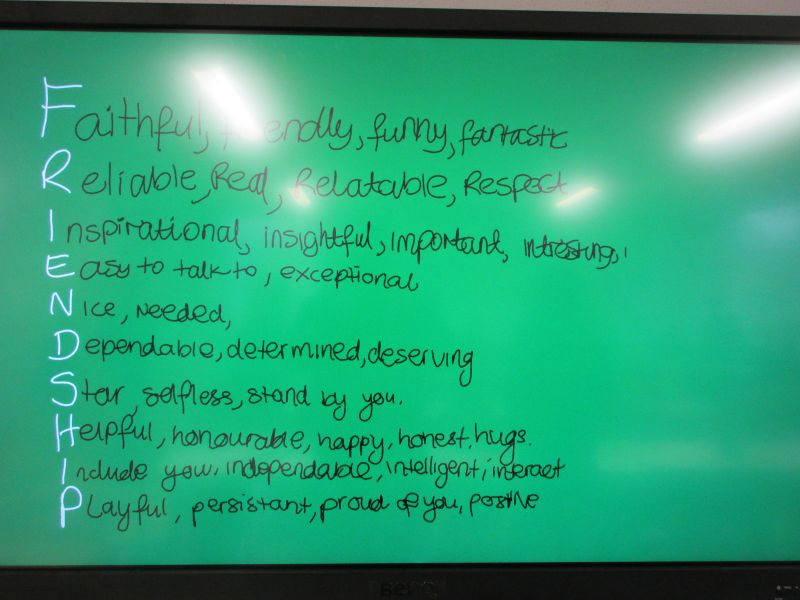 Faithful, friendly, funny, fantastic
Reliable, Real, Relatable, Respect
Inspirational, insightful, important, intresting,
Easy to talk to, exceptional
Nice, Needed,
Dependable, determined, deserving
Star, selfless, stand by you.
Helpful, honourable, happy, honest, hugs.
Include you, independable, intelligent, interact
Playful, persistant, proud of you, positive
BenQ